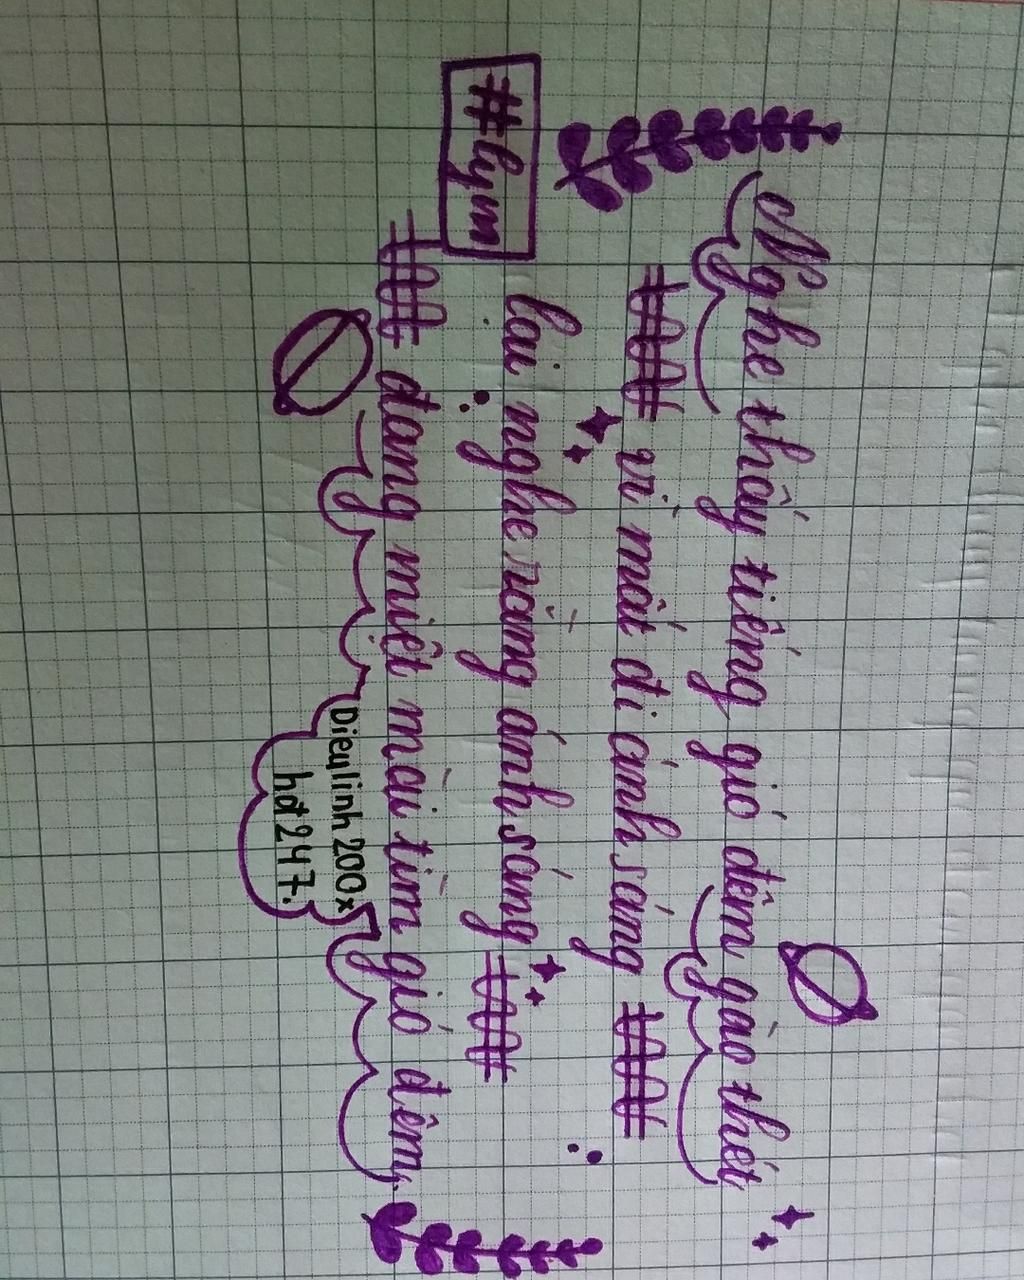 Nghe thấy tiếng gió đêm gào thét
vì mất đi ánh sáng
#lym
lại nghe rằng ánh sáng
đang miệt mài tìm gió đêm.
Dieulinh200x
hot247.